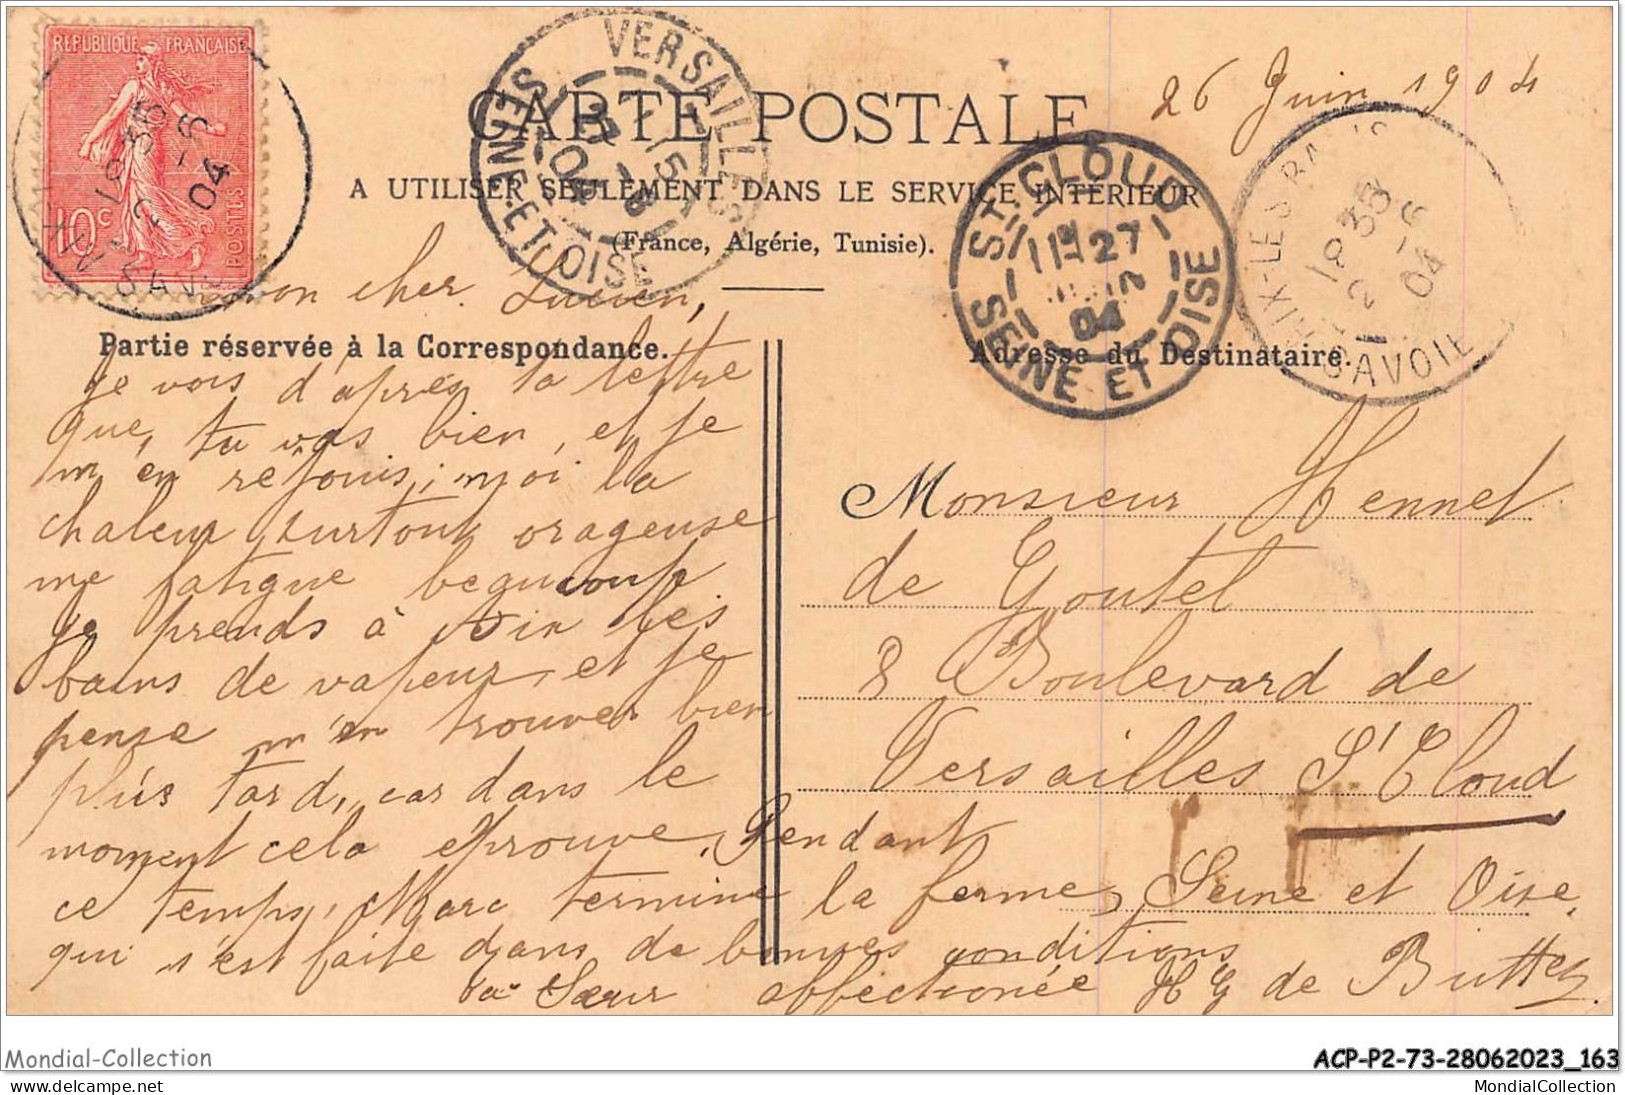 RÉPUBLIQUE FRANÇAISE
10c
POSTES
VERSAILLES
SEINE-ET-OISE
CARTE POSTALE
26 Juin 1904
A UTILISER SEULEMENT DANS LE SERVICE INTÉRIEUR
(France, Algérie, Tunisie).
ST-CLOUD
27
04
SEINE ET OISE
AIX-LES-BAINS
18 35
2 -6
04
SAVOIE
Mon cher Lucien,
Partie réservée à la Correspondance.
Adresse du Destinataire.
je vois d'après ta lettre
que, tu vas bien, et je
m'en réjouis; moi la
chaleur surtout orageuse
me fatigue beaucoup
je prends à Aix les
bains de vapeur, et je
pense m'en trouver bien
plus tard, car dans le
moment cela éprouve. Pendant
ce temps, Marc termine la ferme,
qui s'est faite dans de bonnes conditions
ta Sœur affectionée H G de Buttez.
Monsieur Hennet
de Goutel
8 Boulevard de
Versailles St Cloud
Seine et Oise.
Mondial-Collection
ACP-P2-73-28062023_163
delcampe.net
MondialCollection